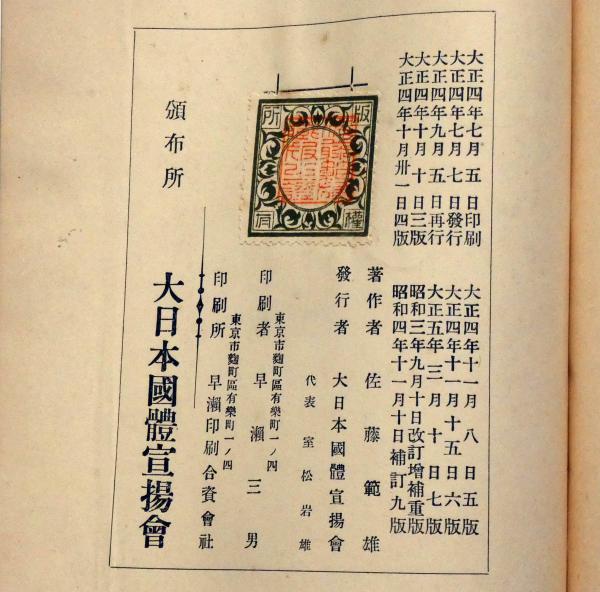 大正四年七月五日印刷
大正四年七月七日發行
大正四年九月五日再行
大正四年十月十日三版
大正四年十月卅一日四版
大正四年十一月八日五版
大正四年十一月十五日六版
大正五年三月十日七版
昭和三年九月十日改訂增補重版
昭和四年十一月十日補訂九版
版權所有
著作者 佐藤範雄
發行者 大日本國體宣揚會
代表 室松岩雄
東京市麴町區有樂町一ノ四
印刷者 早瀨三男
東京市麴町區有樂町一ノ四
印刷所 早瀨印刷合資會社
頒布所 大日本國體宣揚會